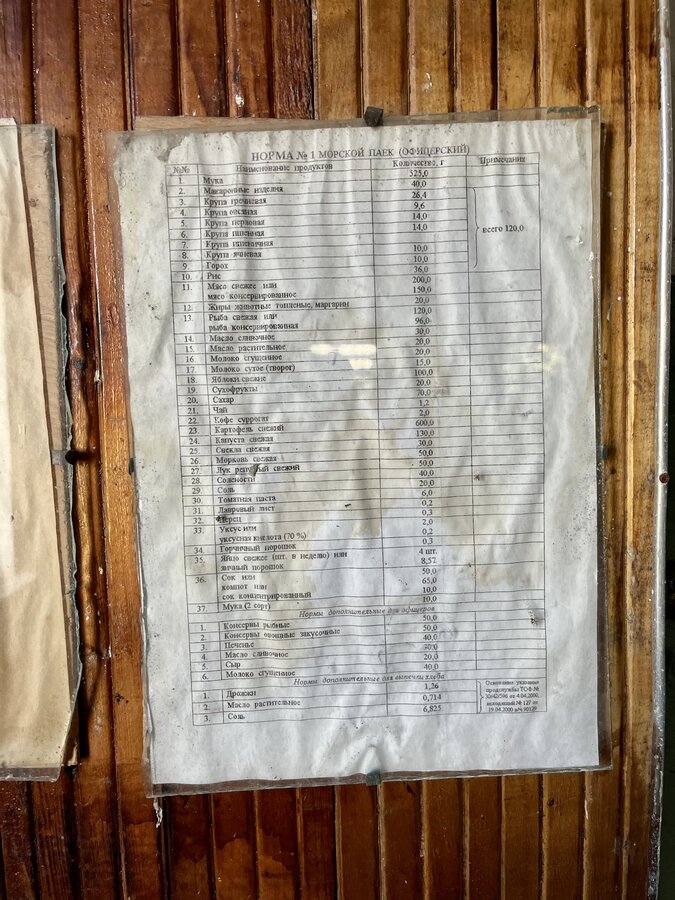 НОРМА № 1 МОРСКОЙ ПАЕК (ОФИЦЕРСКИЙ)
№№ Наименование продуктов Количество, г Примечания
1. Мука 325,0
2. Макаронные изделия 40,0
3. Крупа гречневая 26,4
4. Крупа овсяная 9,6
5. Крупа перловая 14,0
6. Крупа пшенная 14,0 всего 120,0
7. Крупа пшеничная
8. Крупа ячневая 10,0
9. Горох 10,0
10. Рис 36,0
11. Мясо свежее или 200,0
мясо консервированное 150,0
12. Жиры животные топленые, маргарин 20,0
13. Рыба свежая или 120,0
рыба консервированная 96,0
14. Масло сливочное 30,0
15. Масло растительное 20,0
16. Молоко сгущенное 20,0
17. Молоко сухое (творог) 15,0
18. Яблоки свежие 100,0
19. Сухофрукты 20,0
20. Сахар 70,0
21. Чай 1,2
22. Кофе суррогат 2,0
23. Картофель свежий 600,0
24. Капуста свежая 130,0
25. Свекла свежая 30,0
26. Морковь свежая 50,0
27. Лук репчатый свежий 50,0
28. Солености 40,0
29. Соль 20,0
30. Томатная паста 6,0
31. Лавровый лист 0,2
32. Перец 0,3
33. Уксус или 2,0
уксусная кислота (70 %) 0,2
34. Горчичный порошок 0,3
35. Яйцо свежее (шт. в неделю) или 4 шт.
яичный порошок 8,57
36. Сок или 50,0
компот или 65,0
сок концентрированный 10,0
37. Мука (2 сорт) 10,0
Нормы дополнительные для офицеров
1. Консервы рыбные 50,0
2. Консервы овощные закусочные 50,0
3. Печенье 40,0
4. Масло сливочное 30,0
5. Сыр 20,0
6. Молоко сгущенное 40,0
Нормы дополнительные для выпечки хлеба
1. Дрожжи 1,26
2. Масло растительное 0,714
3. Соль 6,825
Основание указание
продслужбы ТОФ №
30/42/596 от 4.04.2000,
исходящий № 127 от
19.04.2000 в/ч 90129